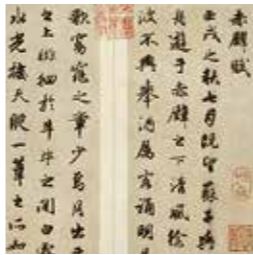 赤壁賦
壬戌之秋七月既望蘇子與
客遊于赤壁之下清風徐
波不興舉酒屬客誦明月
歌窈窕之章少焉月出
之上徘徊於斗牛之間白露
水光接天縱一葦之所如